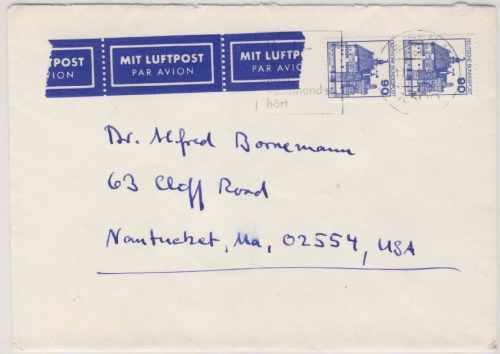 TPOST MIT LUFTPOST MIT LUFTPO
VION PAR AVION PAR AVI
DEUTSCHE BUNDESPOST DEUTSCHE BUNDESPOST
90 90
hört
Dr. Alfred Bornemann
63 Cliff Road
Nantucket, Ma, 02554, USA